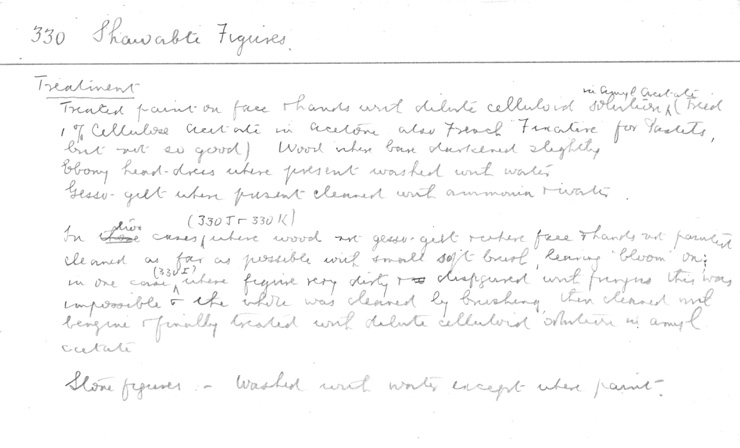 330 Shawabte Figures.
Treatment
in amyl acetate
Treated paint on face & hands with dilute celluloid solution, (Tried
1% Cellulose acetate in acetone also French Fixative for Pastels,
but not so good) Wood when bare darkened slightly
Ebony head-dress where present washed with water
Gesso-gilt where present cleaned with ammonia & water.
(330 J & 330 K)
In two cases, where wood not gesso-gilt & where face & hands not painted
cleaned as far as possible with small soft brush, leaving "bloom" on;
(330 I)
in one case, where figure very dirty & disfigured with fungus this was
impossible & the whole was cleaned by brushing, then cleaned with
benzine & finally treated with dilute celluloid solution in amyl
acetate
Stone figures. - Washed with water except where paint.